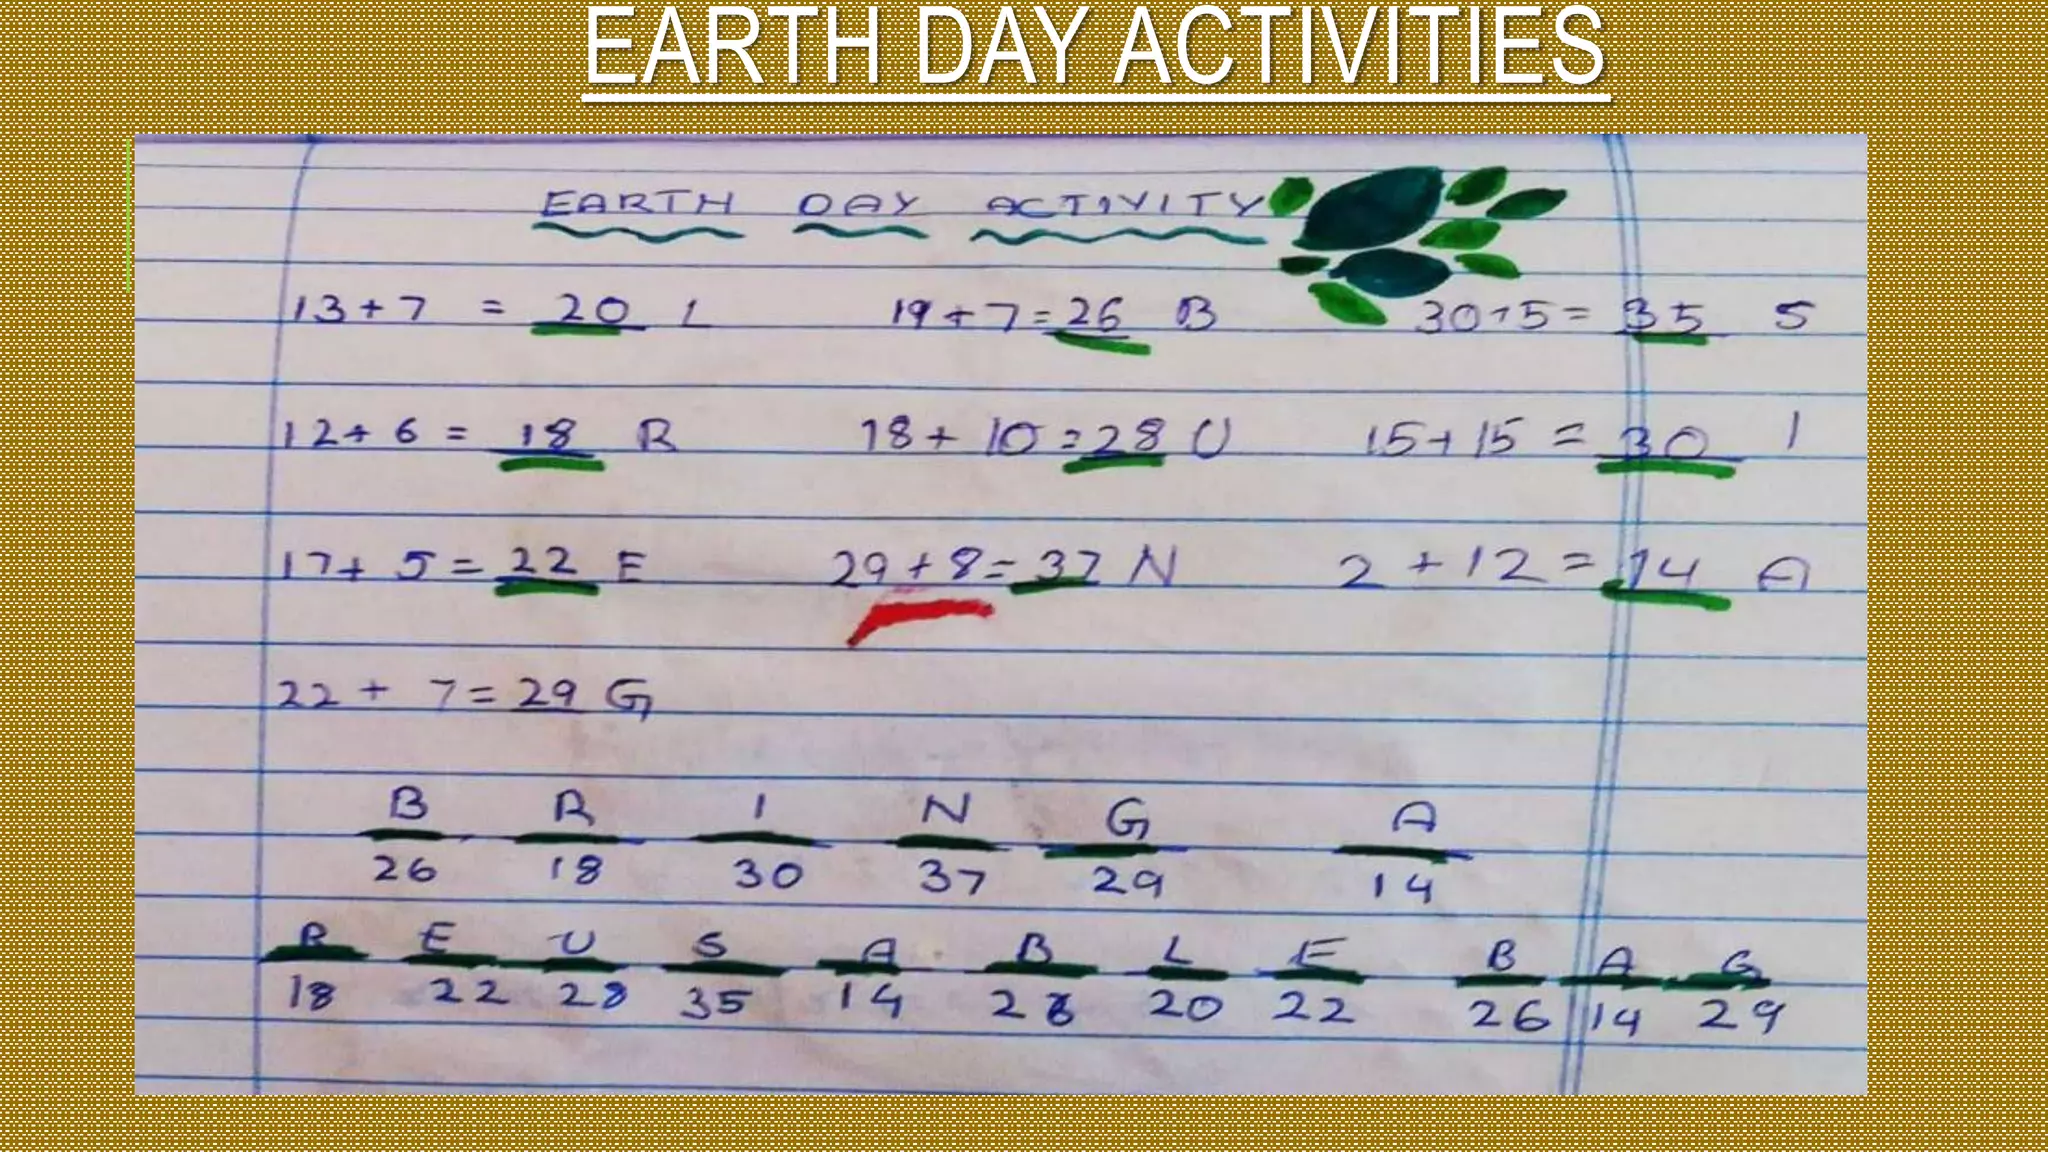 EARTH DAY ACTIVITIES
EARTH DAY ACTIVITY
13+7 = 20 L 19+7=26 B 30+5= 35 S
12+6 = 18 R 18+10=28 U 15+15 = 30 I
17+5=22 E 29+8=37 N 2+12=14 A
22+7=29 G
B R I N G A
26 18 30 37 29 14
R E U S A B L E B A G
18 22 28 35 14 28 20 22 26 14 29